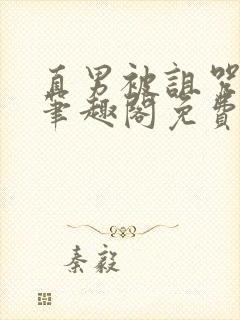 直男被诅咒
笔趣阁免费
秦毅